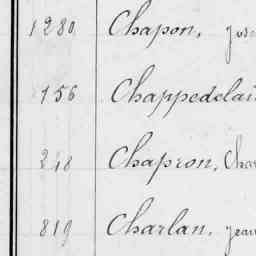 1280 Chapon,
756 Chappedelai
218 Chapron, Cha
819 Charlan, Jean